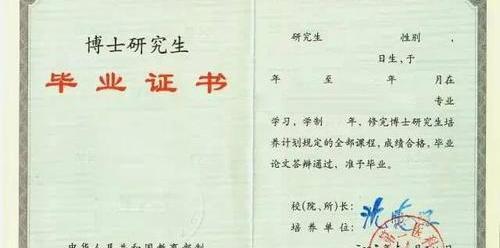 博士研究生
毕业证书
中华人民共和国教育部制
研究生 性别
日生，于
年 至 年 月在
专业
学习，学制 年、修完博士研究生培
养计划规定的全部课程，成绩合格，毕业
论文答辩通过，准予毕业。
校(院、所)长：
培养单位：